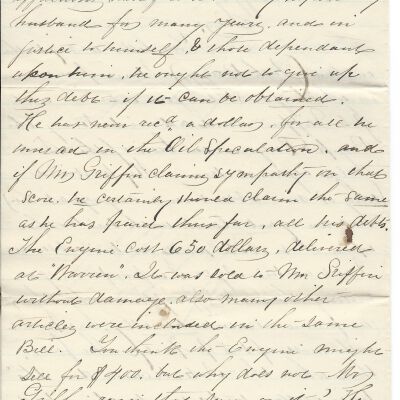 husband for many years, and in
justice to himself, & those dependant
upon him, he ought not to give up
this debt - if it can be obtained.
He has never recd a dollar, for all he
invested in the Oil Speculation, and
if Mr Griffin claims sympathy on that
score, he certainly should claim the same
as he has paid thus far, all his debts.
The Engine cost 650 dollars, delivered
at "Warren". It was sold to Mr Griffin
without damage, also many other
articles were included in the same
Bill. You think the Engine might
sell for $400. but why does not Mr